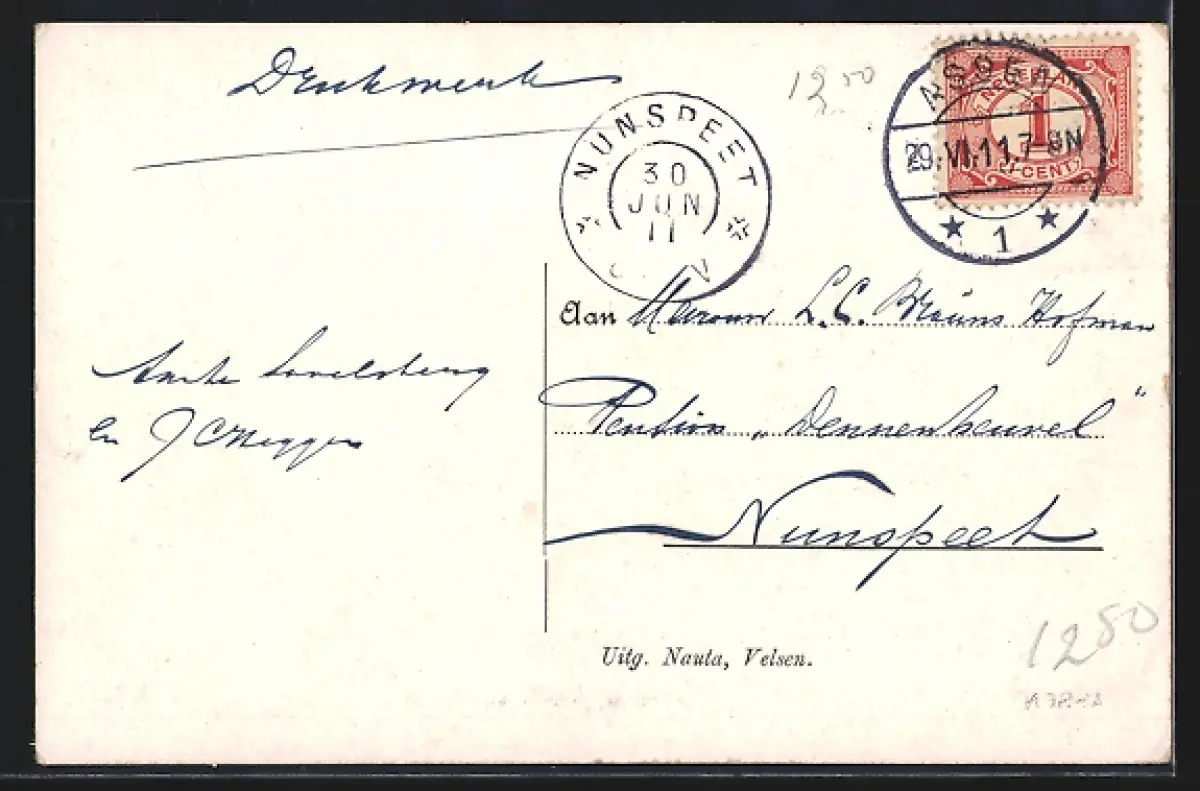 Drukwerk
12 50
NUNSPEET
30
JUN
11
ASSEN
29.VI.11.7-8N
1
NEDERLAND
1
CENT
Aan Mevrouw L.C. Bruins Hofman
Pension „Dennenheuvel"
Nunspeet
en
Uitg. Nauta, Velsen.
1250